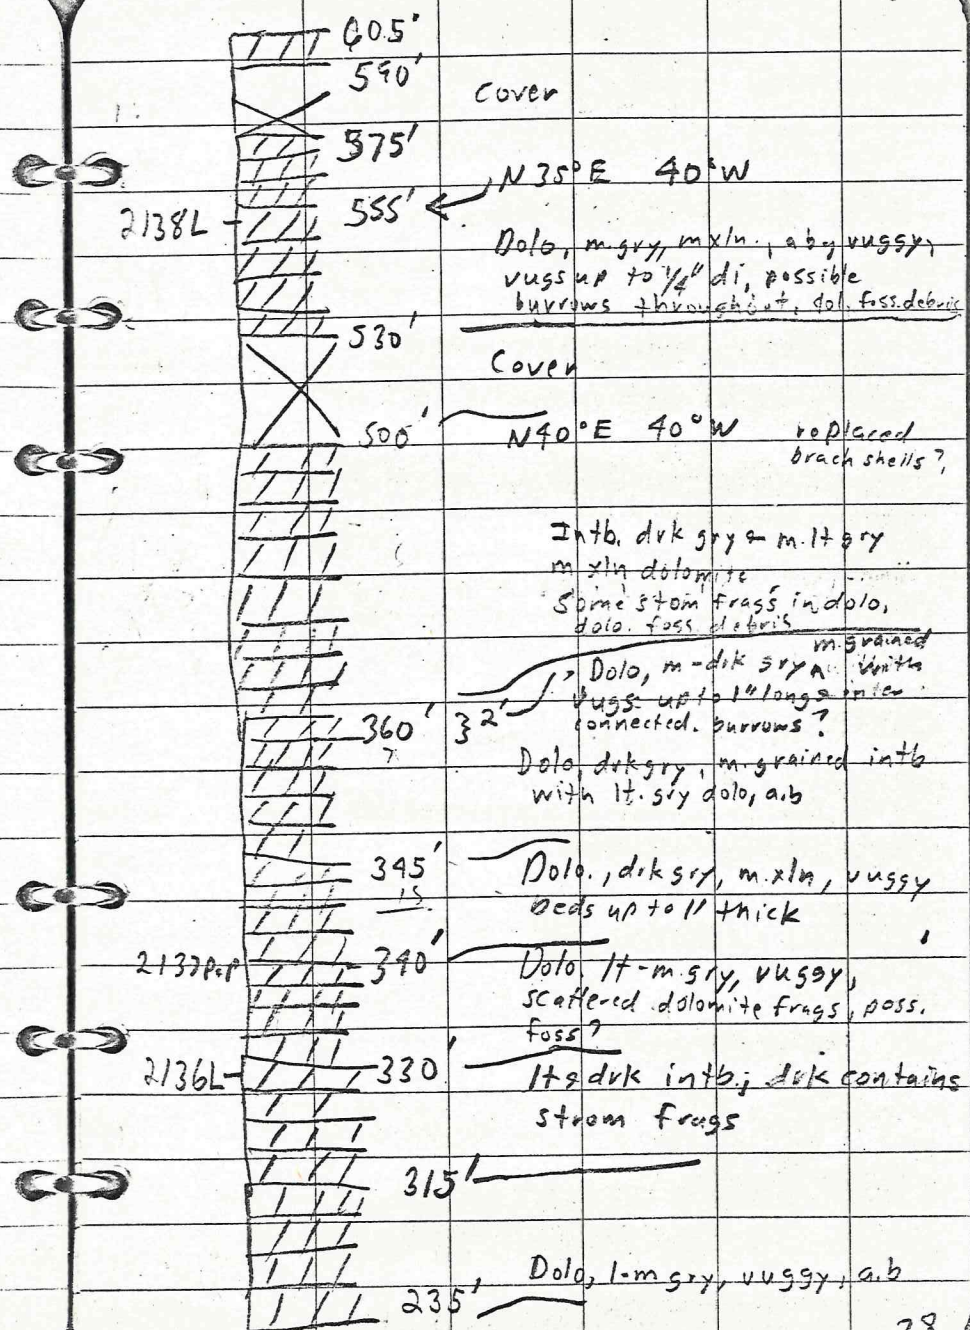 605'
590'
Cover
575'
N35°E 40°W
555'
2138L
Dolo, m.gry, m xln., abg vuggy,
vugs up to 1/4" di, possible
burrows throughout, dol. foss. debris
530'
Cover
500'
N40°E 40°W
replaced
brach shells?
Intb. drk gry & m.lt gry
m xln dolomite
Some stom frags in dolo,
dolo. foss debris
m.grained
Dolo, m-drk gry ^ with
vugs up to 1" long & inter-
connected. burrows?
360' } 2'
Dolo, drk gry, m.grained intb
with lt. gry dolo, a.b
345'
15
Dolo., drk gry, m.xln, vuggy
beds up to 1' thick
340'
2137P&P
Dolo. lt-m.gry, vuggy,
scattered dolomite frags, poss.
foss?
330'
2136L
lt & drk intb; drk contains
strom frags
315'
Dolo, l-m gry, vuggy, a.b
235'
28